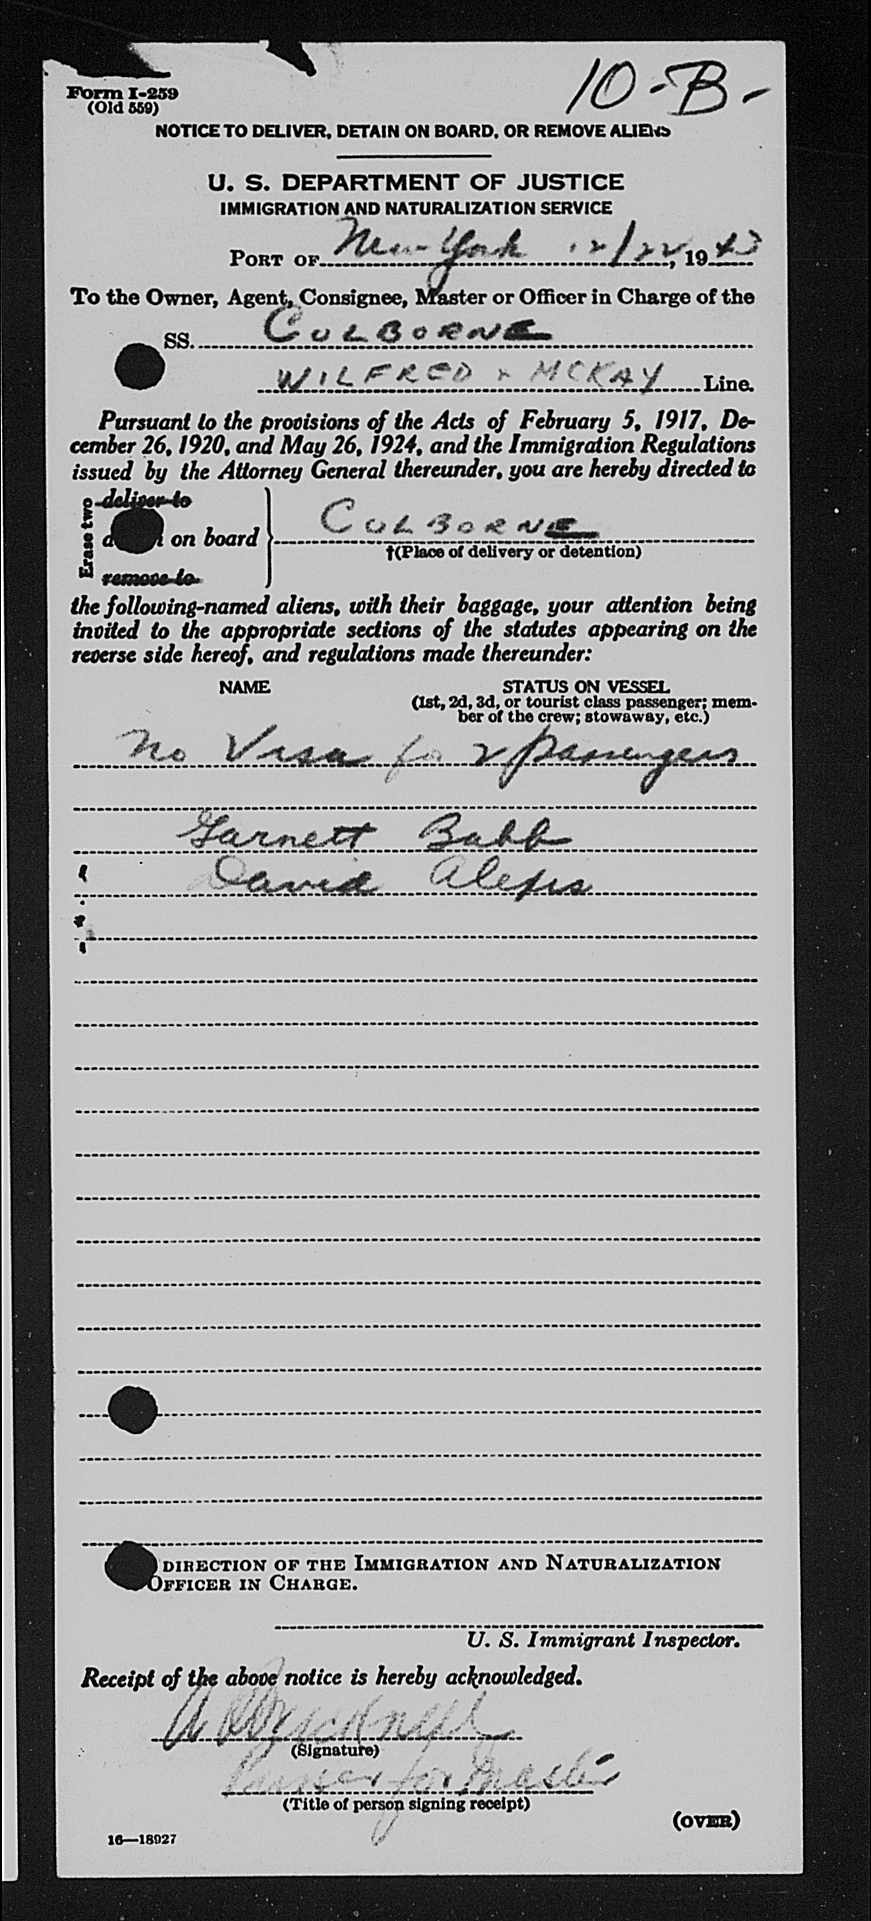 10-B-
Form I-259
(Old 559)
NOTICE TO DELIVER, DETAIN ON BOARD, OR REMOVE ALIENS
U. S. DEPARTMENT OF JUSTICE
IMMIGRATION AND NATURALIZATION SERVICE
PORT OF New York 12/22, 1943
To the Owner, Agent, Consignee, Master or Officer in Charge of the
SS. COLBORNE
WILFRED & MCKAY Line.
Pursuant to the provisions of the Acts of February 5, 1917, De-
cember 26, 1920, and May 26, 1924, and the Immigration Regulations
issued by the Attorney General thereunder, you are hereby directed to
Erase two
deliver to
on board COLBORNE
†(Place of delivery or detention)
remove to
the following-named aliens, with their baggage, your attention being
invited to the appropriate sections of the statutes appearing on the
reverse side hereof, and regulations made thereunder:
NAME STATUS ON VESSEL
(1st, 2d, 3d, or tourist class passenger; mem-
ber of the crew; stowaway, etc.)
No Visa for 2 passengers
Garnett Babb
David Alexis
DIRECTION OF THE IMMIGRATION AND NATURALIZATION
OFFICER IN CHARGE.
U. S. Immigrant Inspector.
Receipt of the above notice is hereby acknowledged.
(Signature)
Purser for Master
(Title of person signing receipt)
(OVER)
16—18927